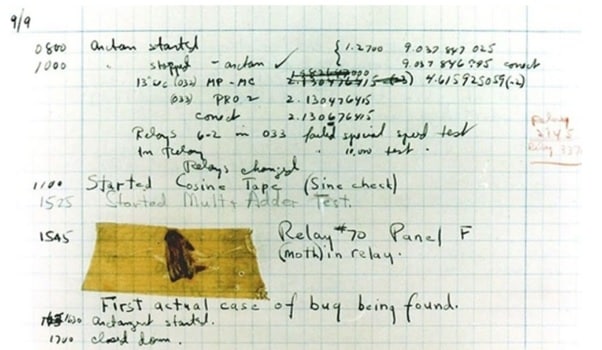 9/9
0800 Antan started { 1.2700 9.037 847 025
1000 " stopped - antan ✓ 9.037 846 995 conect
13" uc (032) MP - MC 2.130476415 (-3) 4.615925059(-2)
(033) PRO 2 2.130476415
conect 2.130676415
Relays 6-2 in 033 failed special speed test
in Relay " 10,000 test .
Relay
2145
Relay 337
Relays changed
1100 Started Cosine Tape (Sine check)
1525 Started Mult + Adder Test.
1545 Relay #70 Panel F
(moth) in relay.
First actual case of bug being found.
1630 antangent started.
1700 closed down .